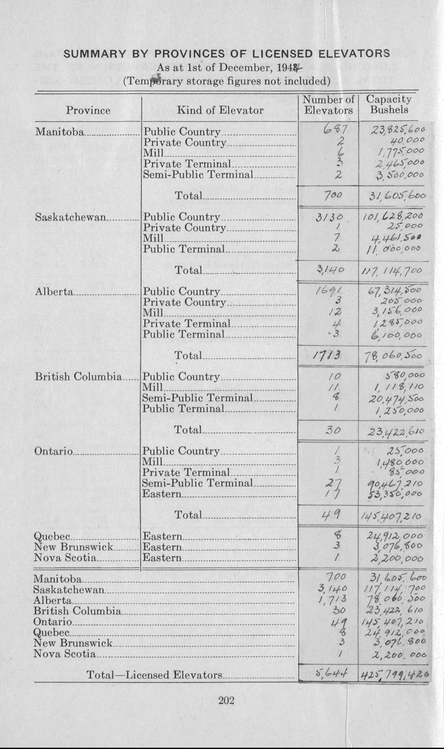 SUMMARY BY PROVINCES OF LICENSED ELEVATORS
As at 1st of December, 1944
(Temporary storage figures not included)
Province Kind of Elevator Number of Elevators Capacity Bushels
Manitoba Public Country 687 23,825,600
Private Country 2 40,000
Mill 6 1,775,000
Private Terminal 3 2,465,000
Semi-Public Terminal 2 3,500,000
Total 700 31,605,600
Saskatchewan Public Country 3130 101,628,200
Private Country 1 25,000
Mill 7 4,461,500
Public Terminal 2 11,000,000
Total 3,140 117,114,700
Alberta Public Country 1691 67,314,500
Private Country 3 205,000
Mill 12 3,156,000
Private Terminal 4 1,285,000
Public Terminal 3 6,100,000
Total 1713 78,060,500
British Columbia Public Country 10 580,000
Mill 11 1,118,110
Semi-Public Terminal 8 20,474,500
Public Terminal 1 1,250,000
Total 30 23,422,610
Ontario Public Country 1 25,000
Mill 3 1,480,000
Private Terminal 1 85,000
Semi-Public Terminal 27 90,467,210
Eastern 17 53,350,000
Total 49 145,407,210
Quebec Eastern 8 24,912,000
New Brunswick Eastern 3 3,076,800
Nova Scotia Eastern 1 2,200,000
Manitoba 700 31,605,600
Saskatchewan 3,140 117,114,700
Alberta 1,713 78,060,500
British Columbia 30 23,422,610
Ontario 49 145,407,210
Quebec 8 24,912,000
New Brunswick 3 3,076,800
Nova Scotia 1 2,200,000
Total—Licensed Elevators 5,644 425,799,420
202